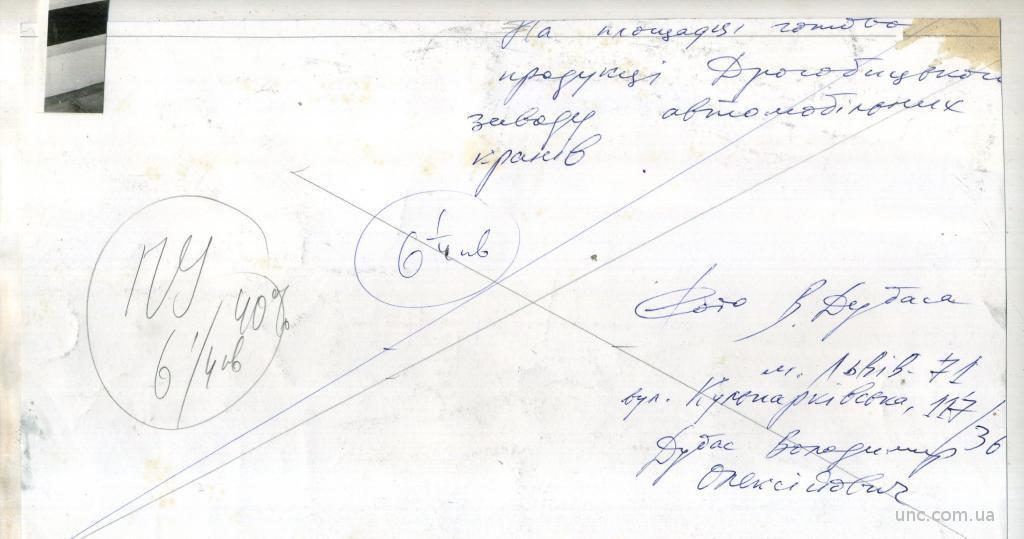 На площадці готової
продукції Дрогобицького
заводу автомобільних
кранів
6 1/4 кв
ПУ
40%
6 1/4 кв
Фото В. Дубаса
м. Львів-71
вул. Кульпарківська, 117/36
Дубас Володимир
Олексійович
unc.com.ua